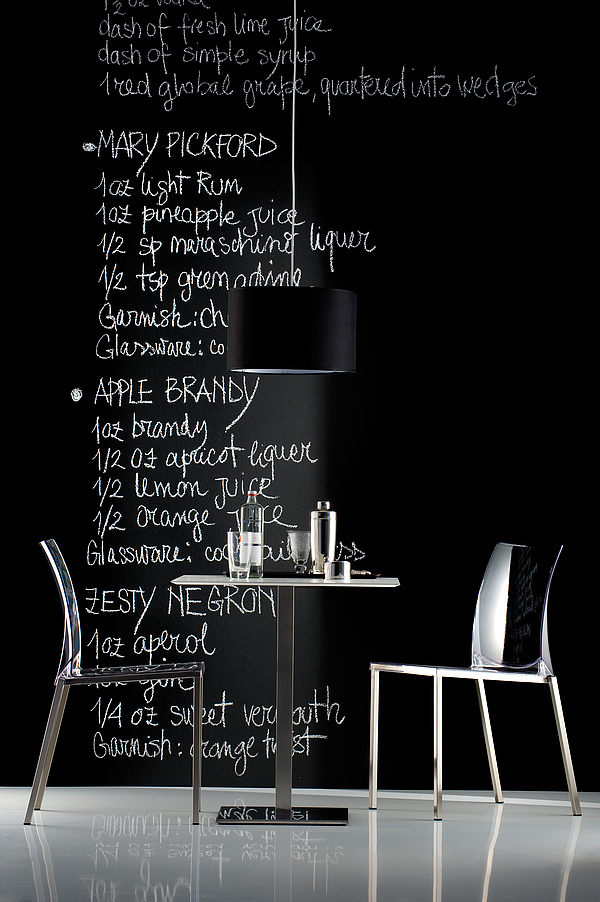 dash of fresh lime juice
dash of simple syrup
1 red global grape, quartered into wedges
MARY PICKFORD
1oz light Rum
1oz pineapple juice
1/2 sp maraschino liquer
1/2 tsp grenadine
Garnish: ch
Glassware: co
APPLE BRANDY
1oz brandy
1/2 oz apricot liquer
1/2 lemon juice
1/2 orange juice
Glassware: cocktail
ZESTY NEGRON
1oz aperol
gin
1/4 oz sweet vermouth
Garnish: orange twist